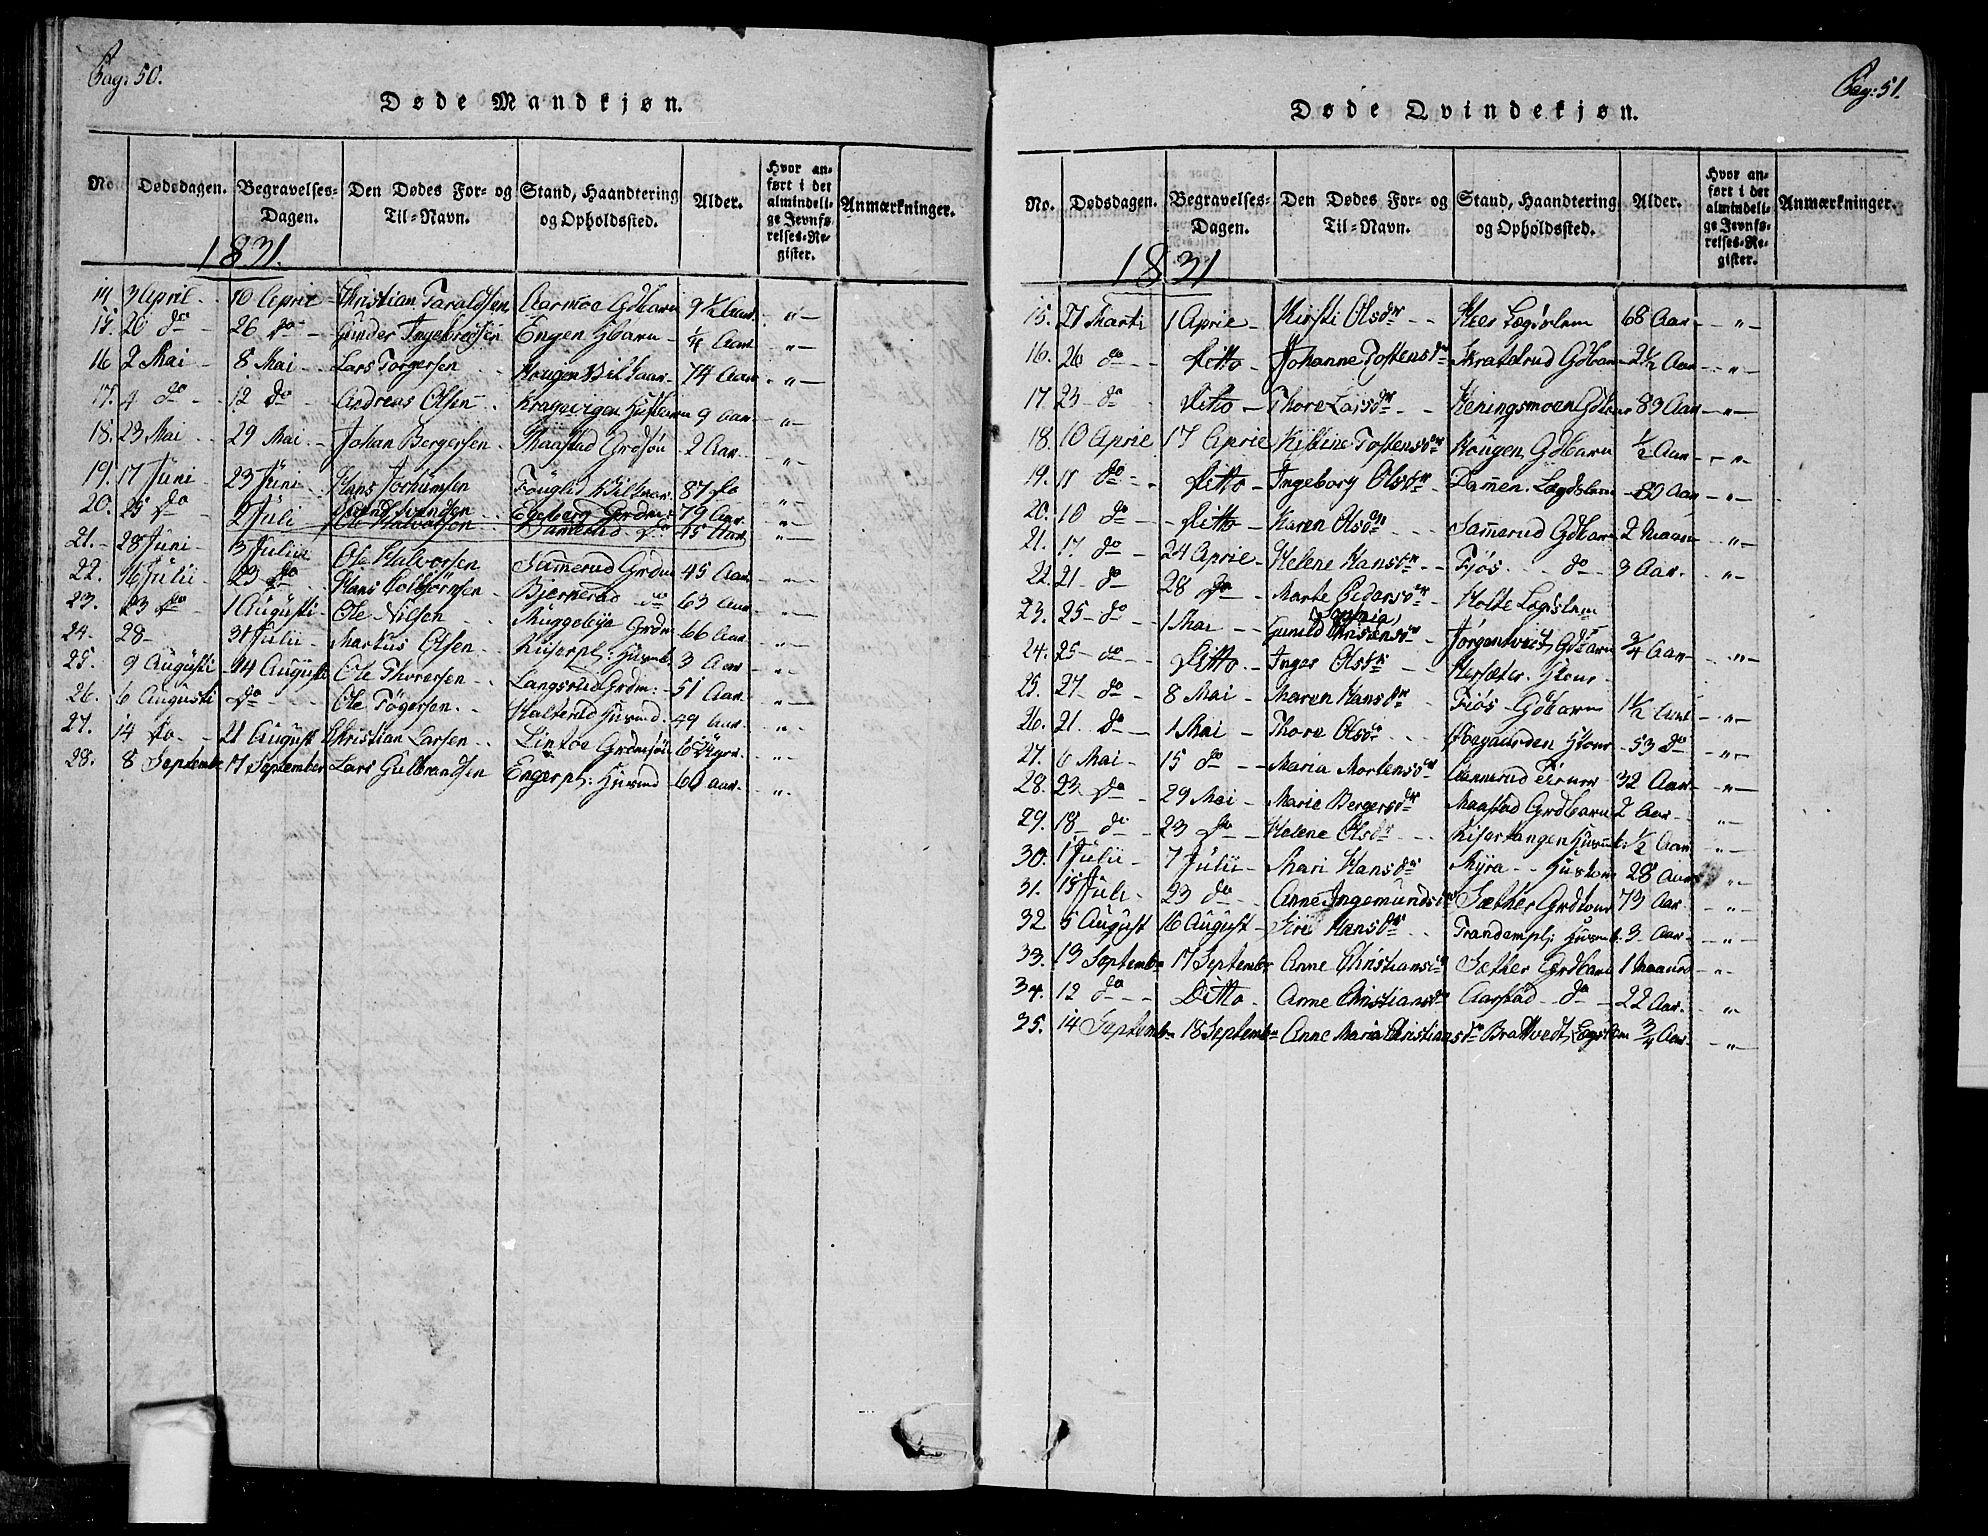 Pag: 50.
Døde Mandkjøn.
No. Dødsdagen. Begravelses-Dagen. Den Dødes For- og Til-Navn. Stand, Haandtering og Opholdssted. Alder. Hvor anført i det almindelige Jevnførelses-Register. Anmærkninger.
1831.
14 3 April 10 April Christian Taraldsen Gdbarn 9 1/2 Aar „
15. 20 do 26 do Gunder Ingebretsen Engen Hbarn 1/4 Aar „
16 2 Mai 8 Mai Lars Torgersen Hougen 74 Aar „
17. 4 do 12 do Andreas Olsen Kragevigen 9 Aar „
18. 23 Mai 29 Mai Johan Bergersen Maastad Grdsøn 2 Aar „
19. 17 Juni 23 Juni Hans Jochumsen 87 do „
20. 25 do 2 Juli Svend Svendsen Egeberg Grdm: 79 Aar „
Ole Halvorsen Samerud do 45 Aar „
21. 28 Juni 3 Julii Ole Halvorsen Samerud Grdm 45 Aar „
22. 16 Julii 23 do Hans Colbjørnsen Bjernerud do 63 Aar „
23. 23 do 1 Augusti Ole Nilsen Muggebye Grdm 66 Aar „
24. 28 31 Julii Markus Olsen 3 Aar „
25. 9 Augusti 14 Augusti Ole Thoresen Langsrud Grdm: 51 Aar „
26. 6 Augusti do Ole Tøgersen Halterud 49 Aar „
27. 14 do 21 August Christian Larsen Lintoe „
28. 8 Septembr 17 September Lars Gulbrandsen Engerpl: Husmd 60 Aar „
Pag: 51.
Døde Qvindekjøn.
No. Dødsdagen. Begravelses-Dagen. Den Dødes For- og Til-Navn. Stand, Haandtering og Opholdssted. Alder. Hvor anført i det almindelige Jevnførelses-Register. Anmærkninger.
1831
15. 27 Marti 1 April Kirsti Olsdr Lægdslem 68 Aar „
16. 26 do Ditto Johanne Tostensdr Skratelrud Gdbarn 2 1/2 Aar „
17. 23 do Ditto Thore Larsdr Heningsmoen 83 Aar „
18. 10 April 17 April Tostensdr Hougen Gdbarn 1/2 Aar „
19. 11 do Ditto Ingeborg Olsdr Dammen Lægdslem 80 Aar „
20. 10 do Ditto Karen Olsdr Samerud Gdbarn 2 Maan „
21. 17 do 24 April Helene Hansdr Fjøs do 3 Aar „
22. 21 do 28 do Marte Pedersdr Holte Lægdslem
23. 25 do 1 Mai Gunild Sophia Jørgentvedt Gdbarn 3/4 Aar „
24. 25 do Ditto Inger Olsdr Hersæter
25. 27 do 8 Mai Maren Hansdr Fjøs Gdbarn 1 1/2 Aar „
26. 21 do 1 Mai Thore Olsdr 53 do „
27. 6 Mai 15 do Maria Mortensdr 32 Aar „
28. 23 do 29 Mai Marie Bergersdr Maastad Grdbarn 2 Aar „
29. 18 do 23 do Helene Olsdr 1/2 Aar „
30. 1 Julii 7 Julii Mari Hansdr Myra 28 Aar „
31. 15 Juli 23 do Anne Ingemundsdr Sæther 73 Aar „
32 5 August 16 August Siri Hansdr Trandempl: 3 Aar „
33. 13 Septembr 17 Septembr Anne Christiansdr Sæther Grdbarn 1 Maaned „
34. 12 do Ditto Anne Christiansdr Aarstad do 22 Aar „
35. 14 Septembr 18 Septembr Anne Maria Christiansdr Brattvedt Lægslem 3/4 Aar „